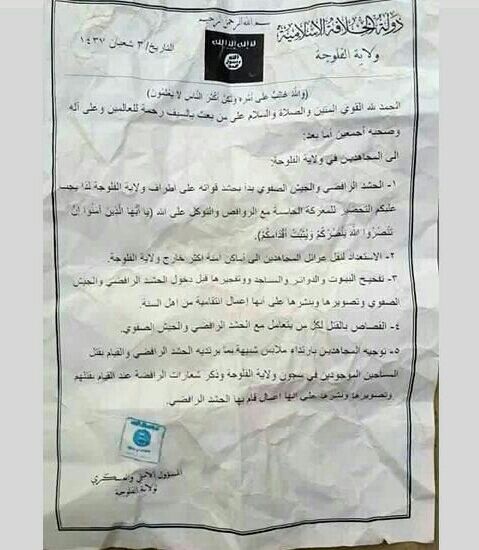 بسم الله الرحمن الرحيم
دولة الخلافة الإسلامية
ولاية الفلوجة
التاريخ/ ٣ شعبان ١٤٣٧
لا إله إلا الله
(وَاللَّهُ غَالِبٌ عَلَى أَمْرِهِ وَلَكِنَّ أَكْثَرَ النَّاسِ لَا يَعْلَمُونَ)
الحمد لله القوي المتين والصلاة والسلام على من بعث بالسيف رحمة للعالمين وعلى آله
وصحبه أجمعين أما بعد:
الى المجاهدين في ولاية الفلوجة:
١- الحشد الرافضي والجيش الصفوي بدا بحشد قواته على اطراف ولاية الفلوجة لذا يجب
عليكم التحضير للمعركة الحاسمة مع الروافض والتوكل على الله (يا أيها الَّذِينَ آمَنُوا إِنْ
تَنْصُرُوا اللَّهَ يَنْصُرْكُمْ وَيُثَبِّتْ أَقْدَامَكُمْ).
٢- الاستعداد لنقل عوائل المجاهدين الى أماكن امنة اكثر خارج ولاية الفلوجة.
٣- تفخيخ البيوت والدوائر والمساجد وتفجيرها قبل دخول الحشد الرافضي والجيش
الصفوي وتصويرها وبنشرها على انها اعمال انتقامية من اهل السنة.
٤- القصاص بالقتل لكل من يتعامل مع الحشد الرافضي والجيش الصفوي.
٥- توجيه المجاهدين بارتداء ملابس شبيهة بما يرتديه الحشد الرافضي والقيام بقتل
المساجين الموجودين في سجون ولاية الفلوجة وذكر شعارات الرافضة عند القيام بقتلهم
وتصويرها ونشرها على انها اعمال قام بها الحشد الرافضي.
المسؤول الأمني والعسكري
لولاية الفلوجة